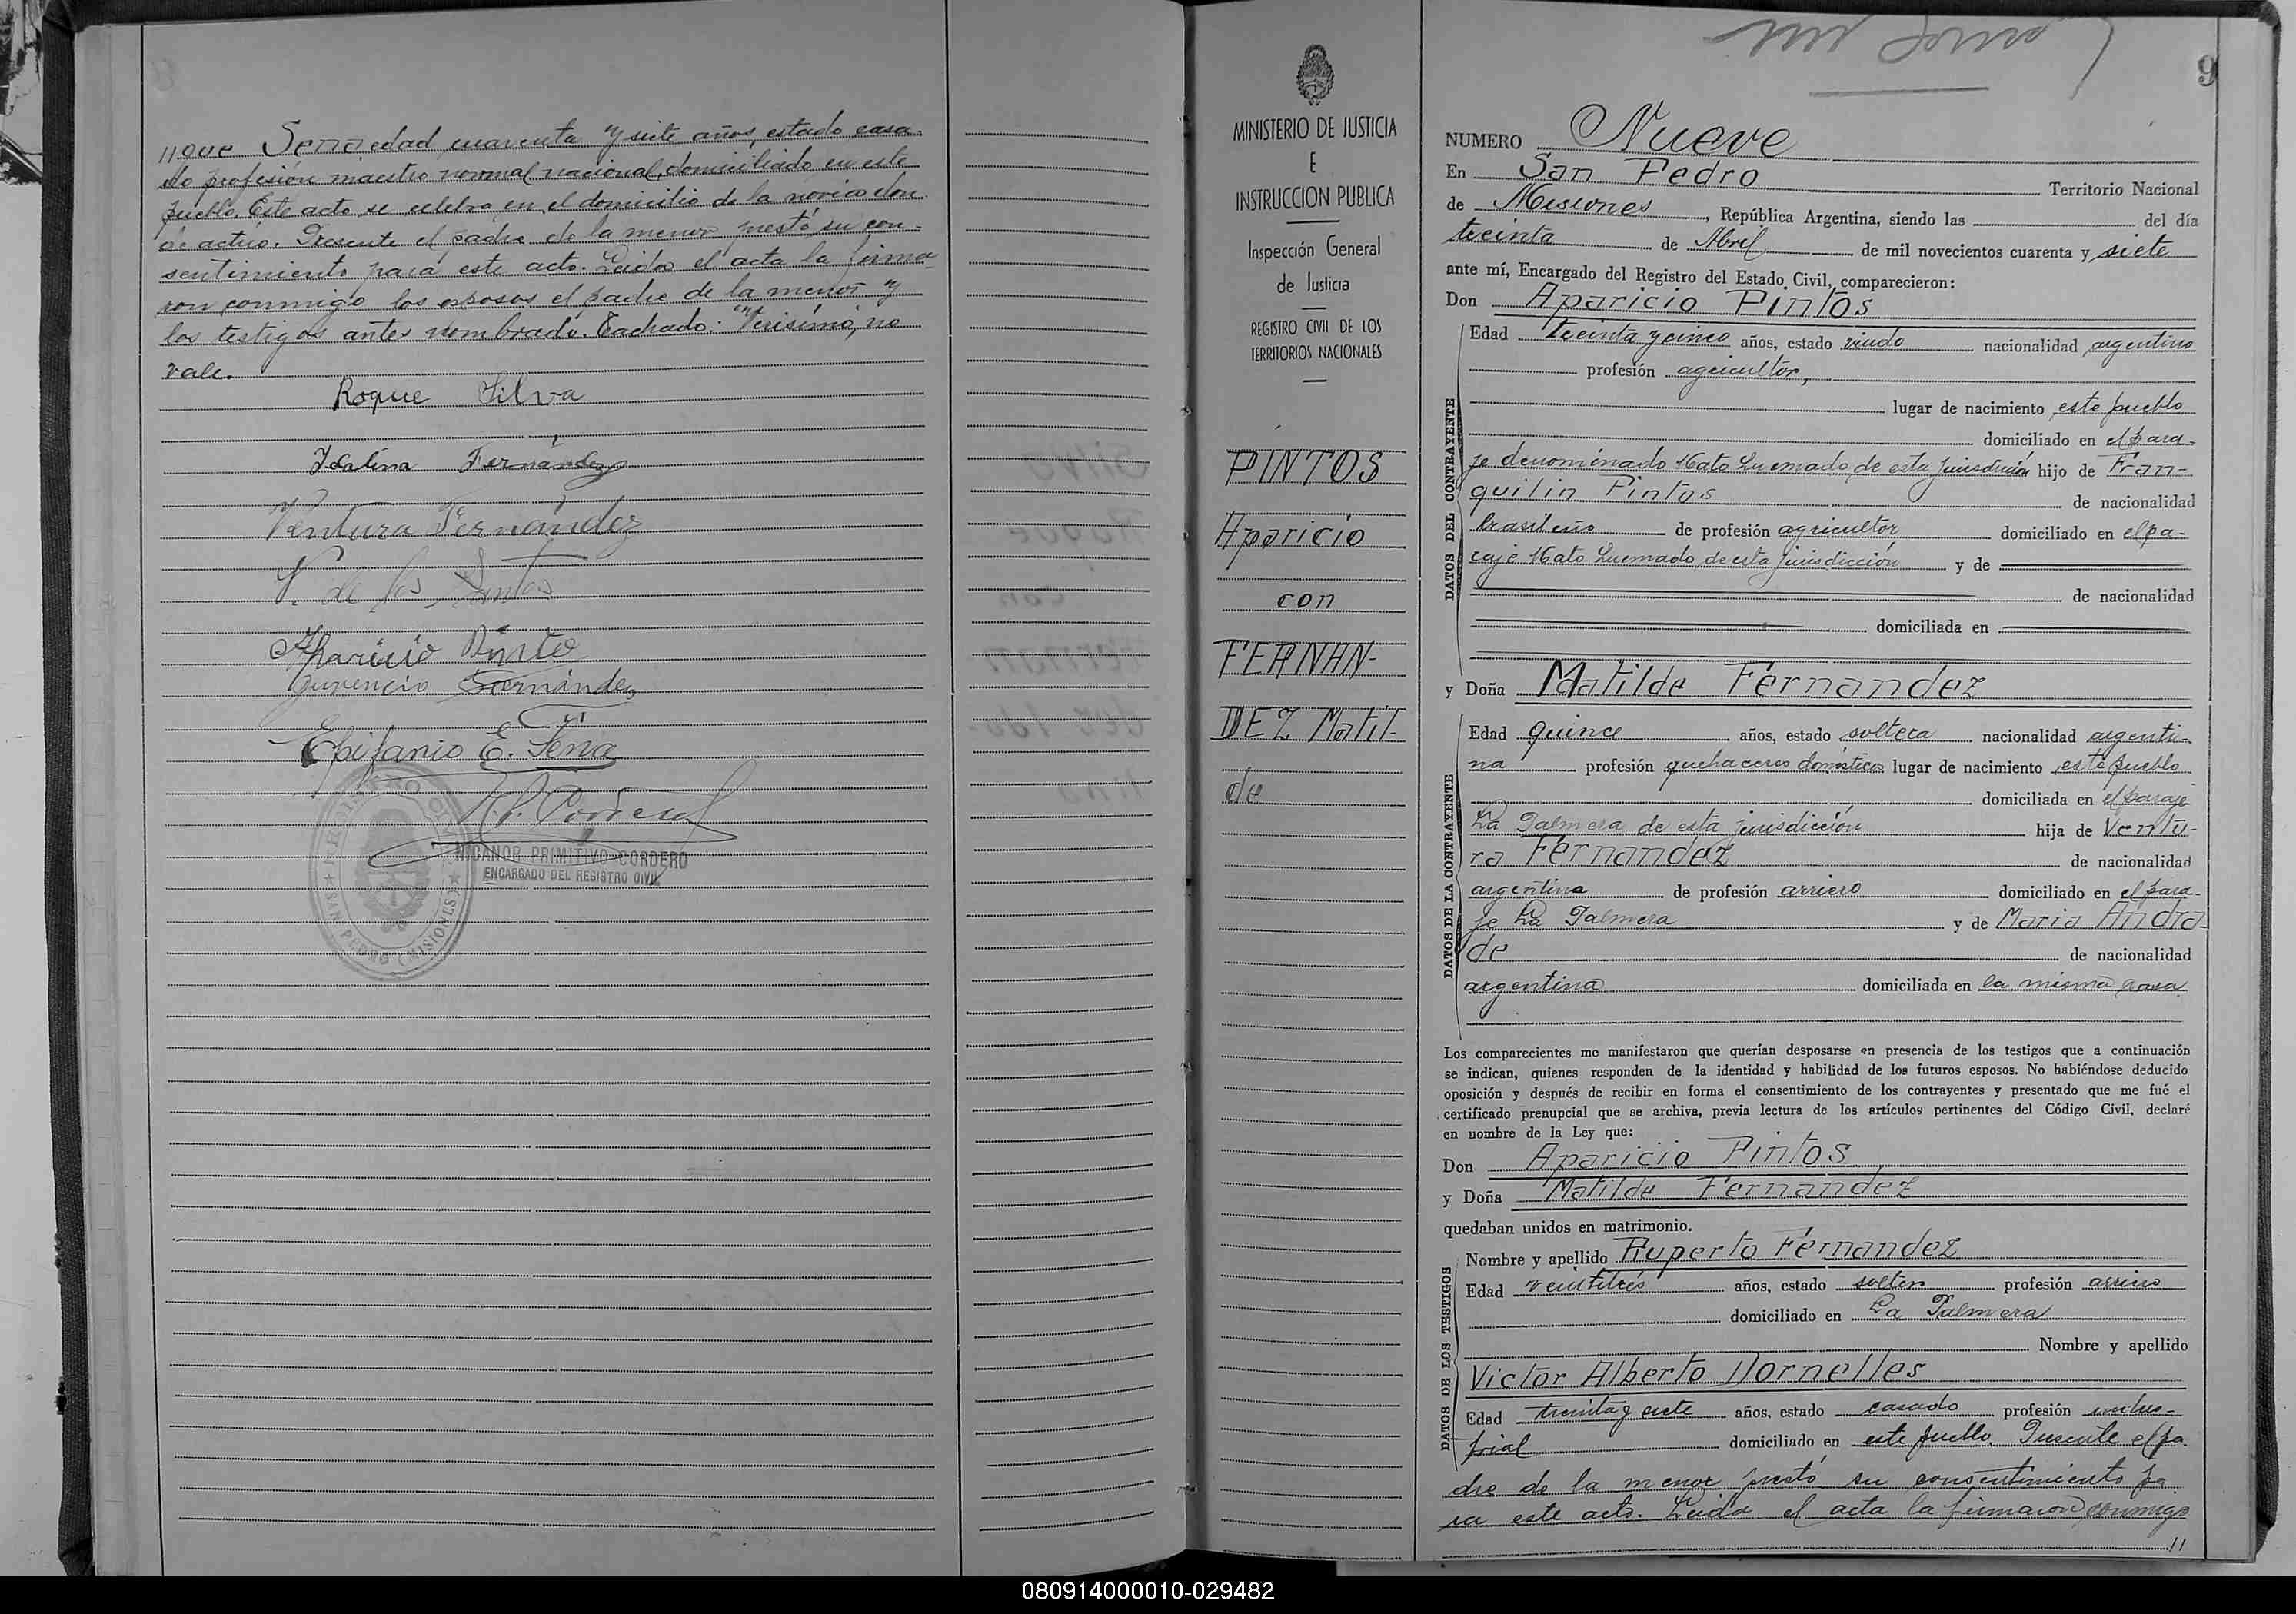 nque Sena edad cuarenta y siete años, estado casa-
do profesión maestro normal nacional, domiciliado en este
pueblo. Este acto se celebra en el domicilio de la novia don-
de actúo. Presente el padre de la menor prestó su con-
sentimiento para este acto. Leída el acta la firma-
ron conmigo los esposos el padre de la menor y
los testigos antes nombrado. Tachado: "Verisimo", no
vale.
Roque Silva
Idalina Fernandez
Ventura Fernández
V. de los Santos
Aparicio Pinto
Juvencio Fernández
Epifanio E. Sena
N. P. Cordero
NICANOR PRIMITIVO CORDERO
ENCARGADO DEL REGISTRO CIVIL
REGISTRO CIVIL
SAN PEDRO (MISIONES)
MINISTERIO DE JUSTICIA
E
INSTRUCCION PUBLICA
Inspección General
de Justicia
REGISTRO CIVIL DE LOS
TERRITORIOS NACIONALES
PINTOS
Aparicio
con
FERNAN-
DEZ Matil-
de
9
NUMERO Nueve
En San Pedro Territorio Nacional
de Misiones, República Argentina, siendo las del día
treinta de Abril de mil novecientos cuarenta y siete
ante mí, Encargado del Registro del Estado Civil, comparecieron:
Don Aparicio Pintos
DATOS DEL CONTRAYENTE
Edad treinta y cinco años, estado viudo nacionalidad argentino
profesión agricultor,
lugar de nacimiento este pueblo
domiciliado en el para-
je denominado Mato Quemado, de esta jurisdicción hijo de Fran-
quilin Pintos de nacionalidad
brasileño de profesión agricultor domiciliado en el pa-
raje Mato Quemado, de esta jurisdicción y de
de nacionalidad
domiciliada en
y Doña Matilde Fernandez
DATOS DE LA CONTRAYENTE
Edad quince años, estado soltera nacionalidad argenti-
na profesión quehaceres domésticos lugar de nacimiento este pueblo
domiciliada en el paraje
La Palmera de esta jurisdicción hija de Ventu-
ra Fernandez de nacionalidad
argentina de profesión arriero domiciliado en el para-
je La Palmera y de Maria Andra-
de de nacionalidad
argentina domiciliada en la misma casa
Los comparecientes me manifestaron que querían desposarse en presencia de los testigos que a continuación
se indican, quienes responden de la identidad y habilidad de los futuros esposos. No habiéndose deducido
oposición y después de recibir en forma el consentimiento de los contrayentes y presentado que me fué el
certificado prenupcial que se archiva, previa lectura de los artículos pertinentes del Código Civil, declaré
en nombre de la Ley que:
Don Aparicio Pintos
y Doña Matilde Fernandez
quedaban unidos en matrimonio.
DATOS DE LOS TESTIGOS
Nombre y apellido Ruperto Fernandez
Edad veintitrés años, estado soltero profesión arriero
domiciliado en La Palmera
Nombre y apellido
Victor Alberto Dornelles
Edad treinta y siete años, estado casado profesión indus-
trial domiciliado en este pueblo. Presente el pa-
dre de la menor prestó su consentimiento pa-
ra este acto. Leída el acta la firmaron conmigo
//
080914000010-029482